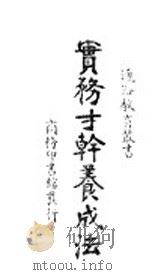 通俗教育叢書
實務才幹養成法
商務印書館發行